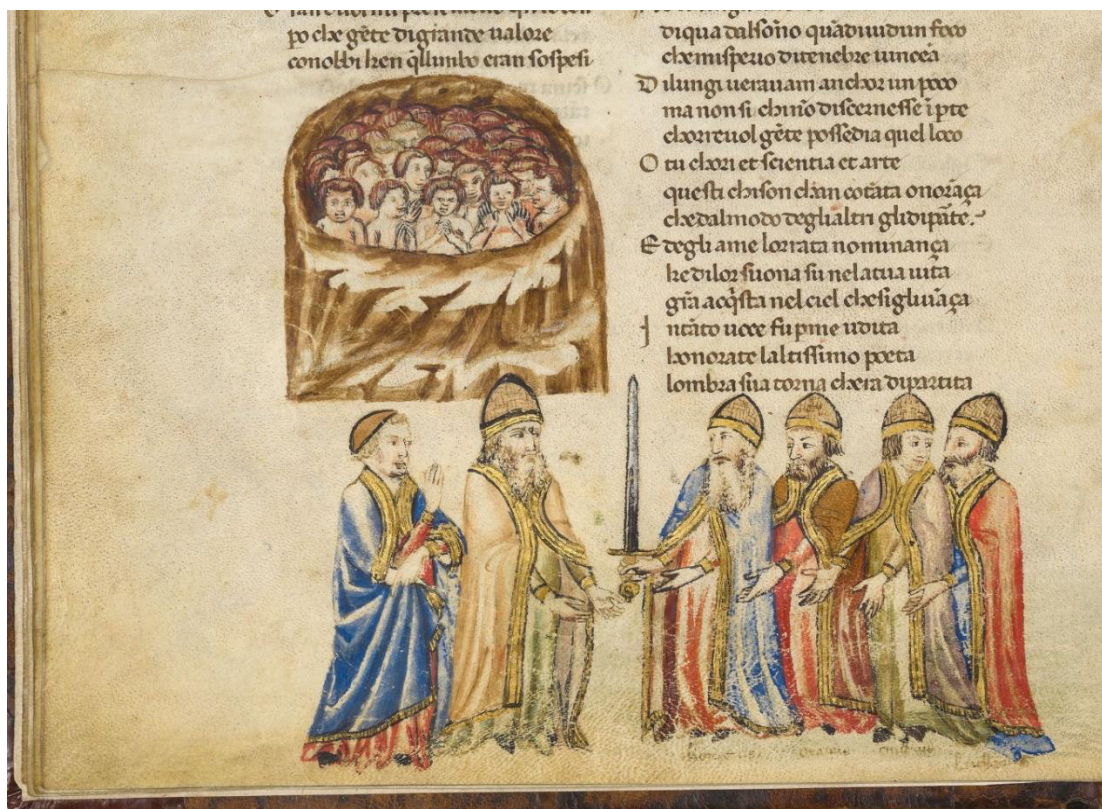 po che gẽte digiande ualore
conobbi ken qllimbo eran sospesi
diqua dalsono quãdiuidun foco
chemisperio ditenebre uinceã
D ilungi uerauam anchor un poco
ma non si chĩno discernesse ĩ pte
chorreuol gẽte possedia quel loco
O tu chori et scientia et arte
questi chison chãn cotãta onorãça
che dal modo degli altri gli dipãte
E degli ame lorrata nominança
ke dilor suona su nela tua uita
gr̃a acq̃sta nel ciel che si gliuiãça
I ntãto uoce fu p me udita
honorate laltissimo poeta
lombra sua torna chera dipartita